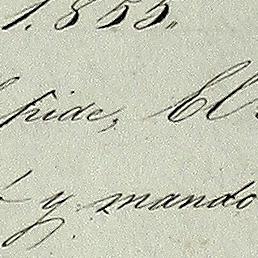 1.855.
pide, El
y mando